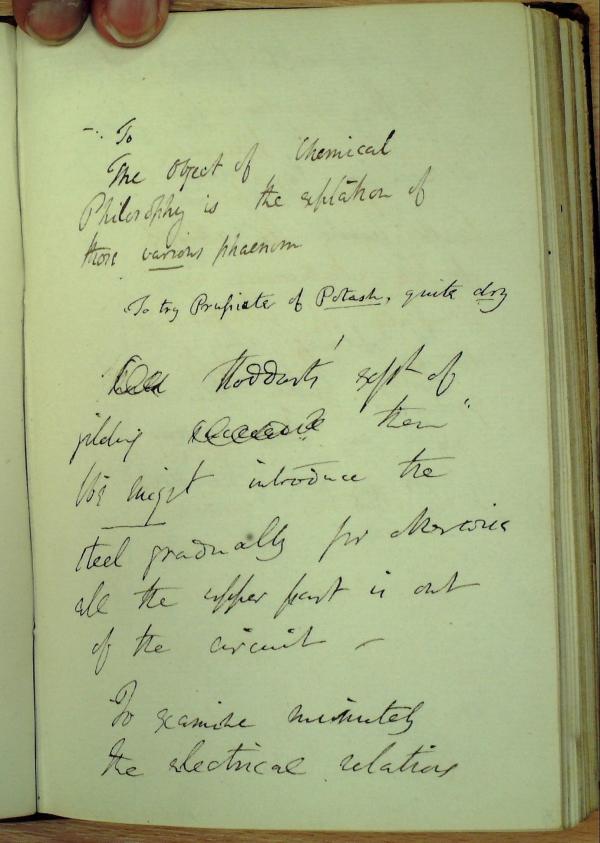 To
The Object of Chemical
Philosophy is the explation of
those various phaenom
To try Prussiate of Potash, quite dry
Stoddart's expt of
gilding them
We might introduce the
steel gradually for otherwise
all the upper part is out
of the circuit –
To examine minutely
the electrical relations